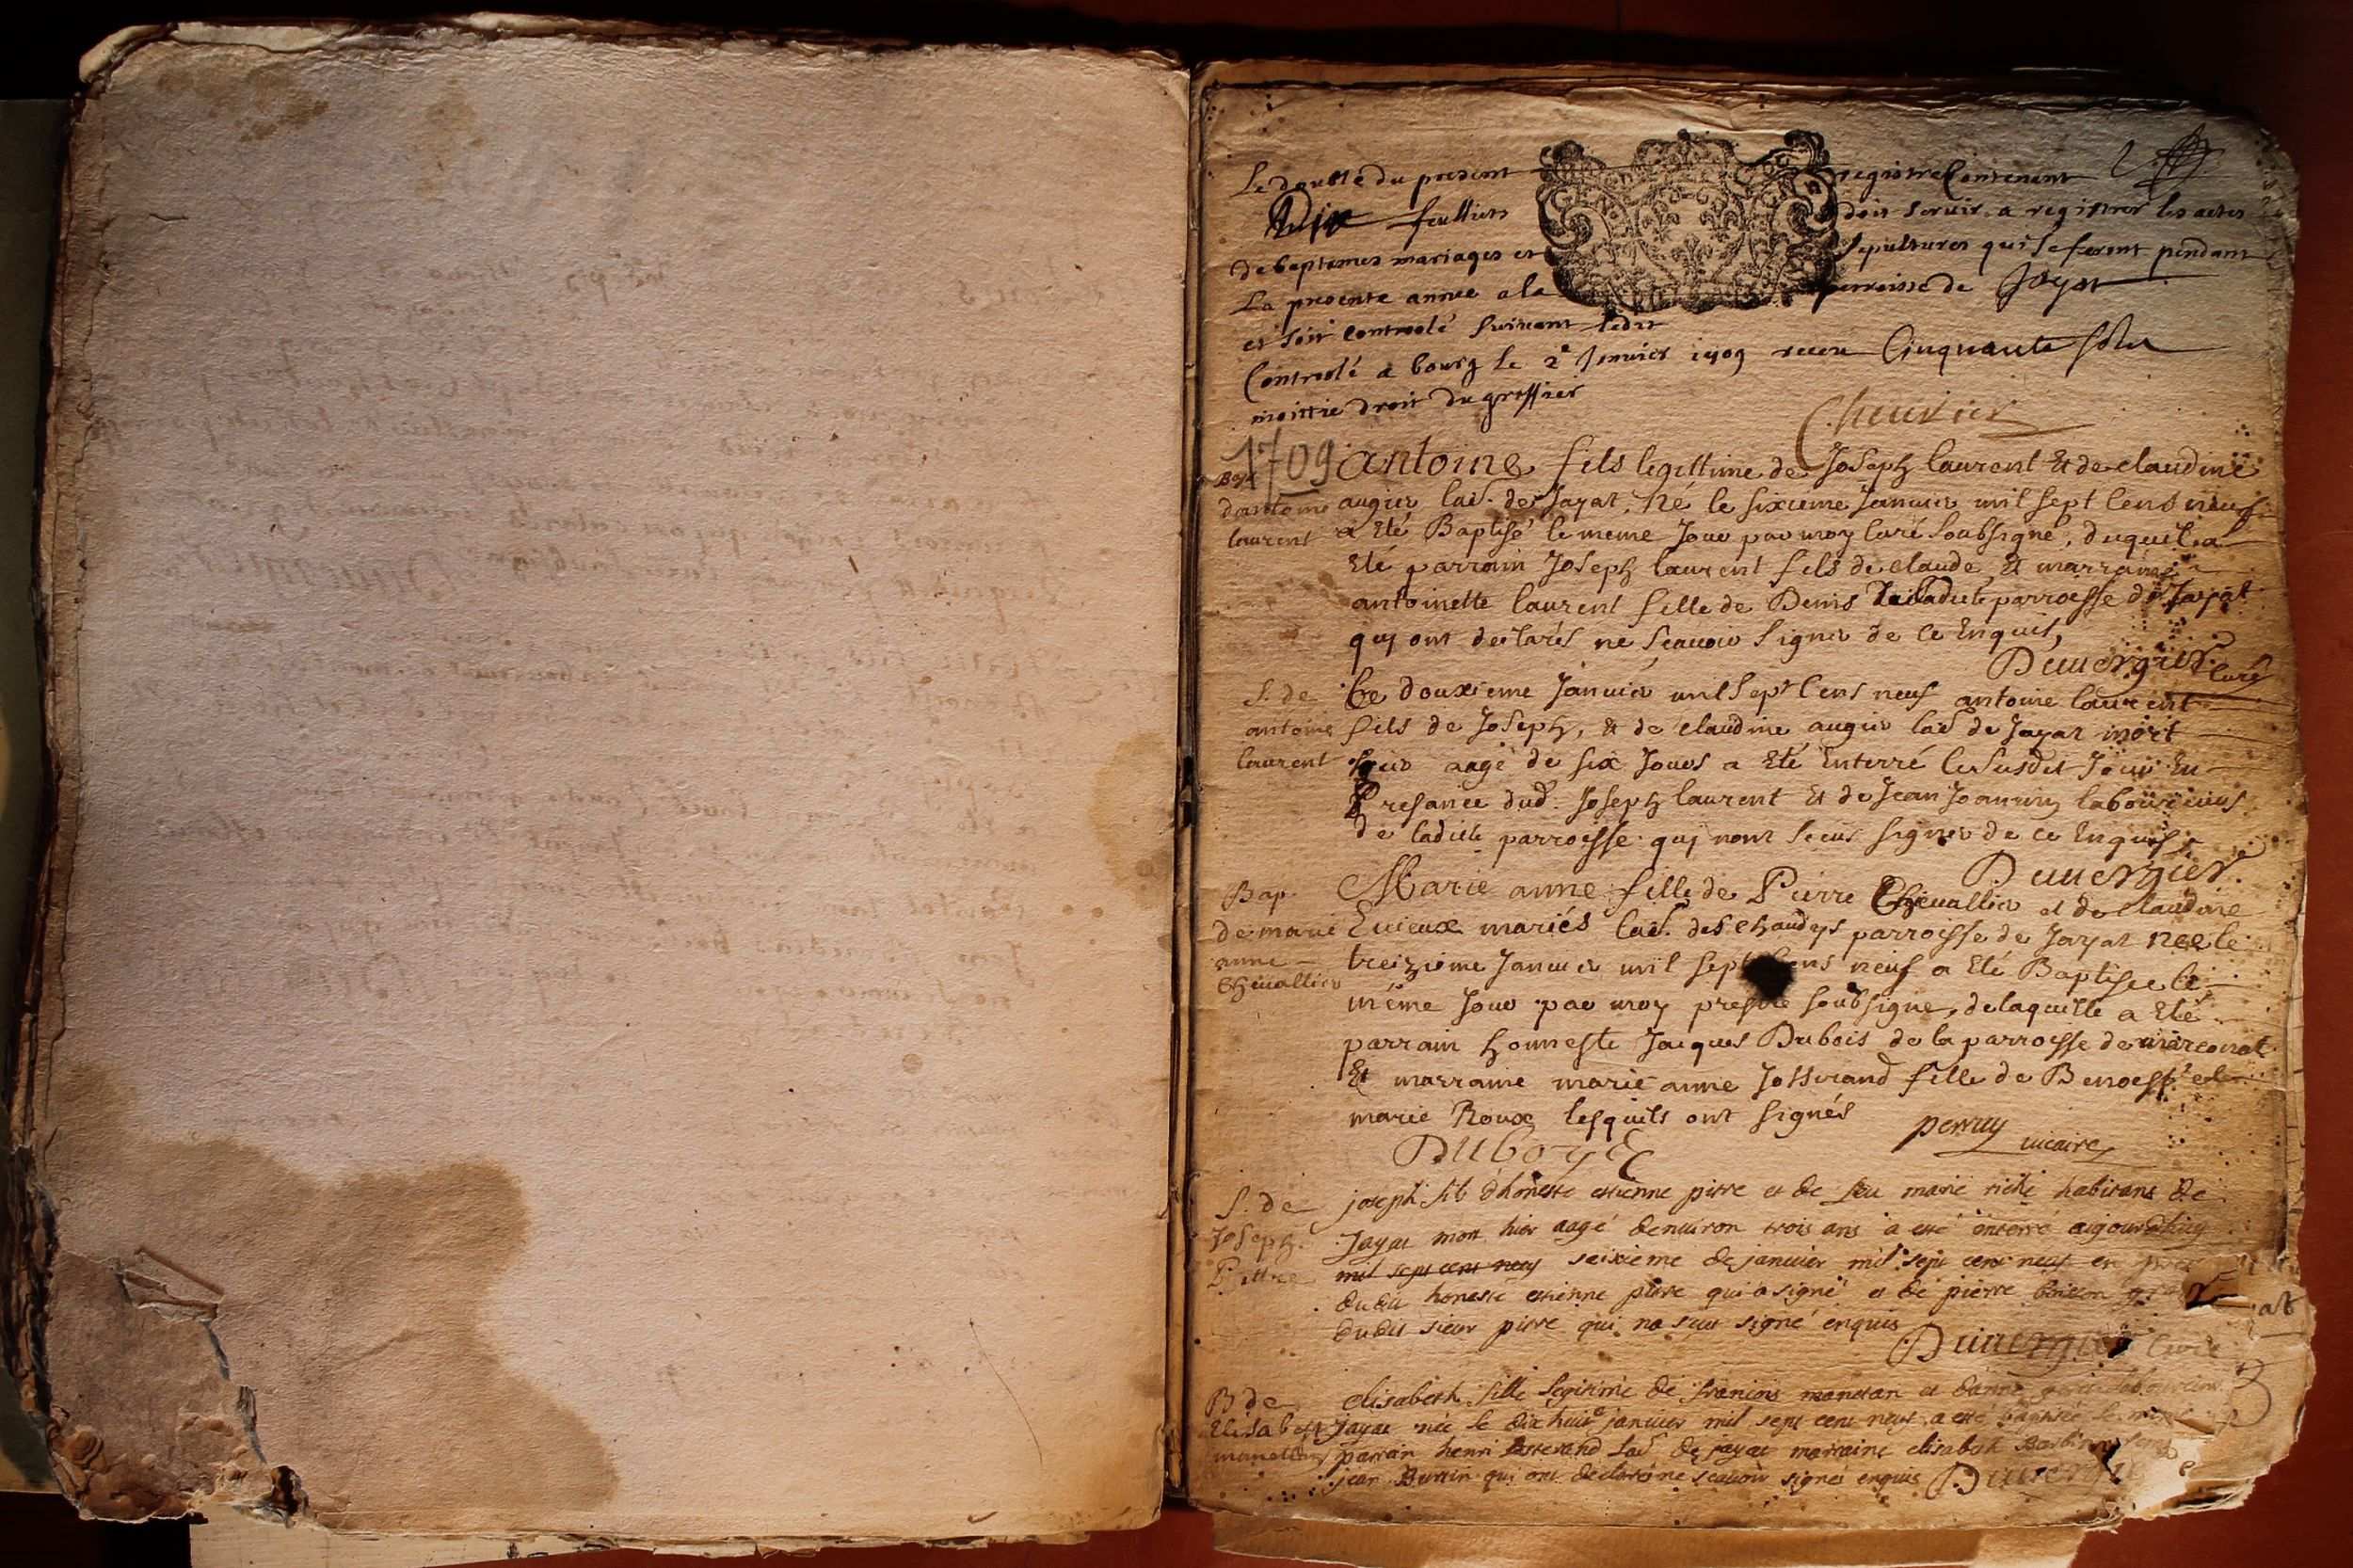 Le double du present registre Contenant
Dix feulliets doit servir a registrer les actes
de baptemes mariages et sepultures qui se feront pendant
La presente annee a la parroisse de Jayat
et soit controolé suivant ledit
Controolé a bourg le 2e Janvier 1709 receu Cinquante sols
moittie droit du greffier
Cheuvier
1709
Bap.
d'antoine
laurent
antoine fils legittime de Joseph laurent Et de claudine
augier lab. de Jayat, Né le sixieme Januier mil sept Cens neuf
a Eté Baptisé le meme Jour par moy Curé soubsigné, duquel a
Eté parrain Joseph laurent fils de claude Et marraine
antoinette laurent fille de Denis de ladicte parroisse de Jayat
quj ont declarés ne scauoir signer de ce Enquis,
Duuergier Curé
S. de
antoine
laurent
Ce douxieme Januier mil sept Cens neuf antoine laurent
fils de Joseph, & de claudine augier lab. de Jayat mort
hier aagé de six Jours a Eté Enterré le susdit Jour En
Presance dud. Joseph laurent Et de Jean Joannin laboureurs
de ladicte parroisse quj nont sceus signer de ce Enquis
Duuergier
Bap.
de marie
anne
Cheuallier
Marie anne fille de Pierre Cheuallier et de claudine
Euieux mariés lab. des chaudeys parroisse de Jayat nee le
treizieme Januier mil sept Cens neuf a Eté Baptisee le
méme Jour par moy presbre soubsigne, delaquelle a Eté
parrain honneste Jacques Dubois de la parroisse de marconat
Et marraine marie anne Josserand fille de Benoest et
marie Roux lesquels ont signés
perruy vicaire
DUboys
S. de
Joseph
Pittre
joseph fils d'honeste estienne pitre et de feu marie riche habitans de
Jayat mort hier aagé denuiron trois ans a esté enterré aujourdhuy
mil sept cent neuf seixieme de januier mil sept cent neuf en
dudit honeste estienne pitre qui a signé et de pierre
dudit sieur pitre qui na sceu signé enquis
Duuergier Curé
B de
Elisabeth
manetan
elisabeth fille legitime de francois manetan et danne
Jayat née le dix huite januier mil sept cent neuf a esté baptisée le
parrain henri Josserand lab. de jayat marraine elisabeth
jean Burtin qui ont declaré ne scauoir signer enquis Duuergier